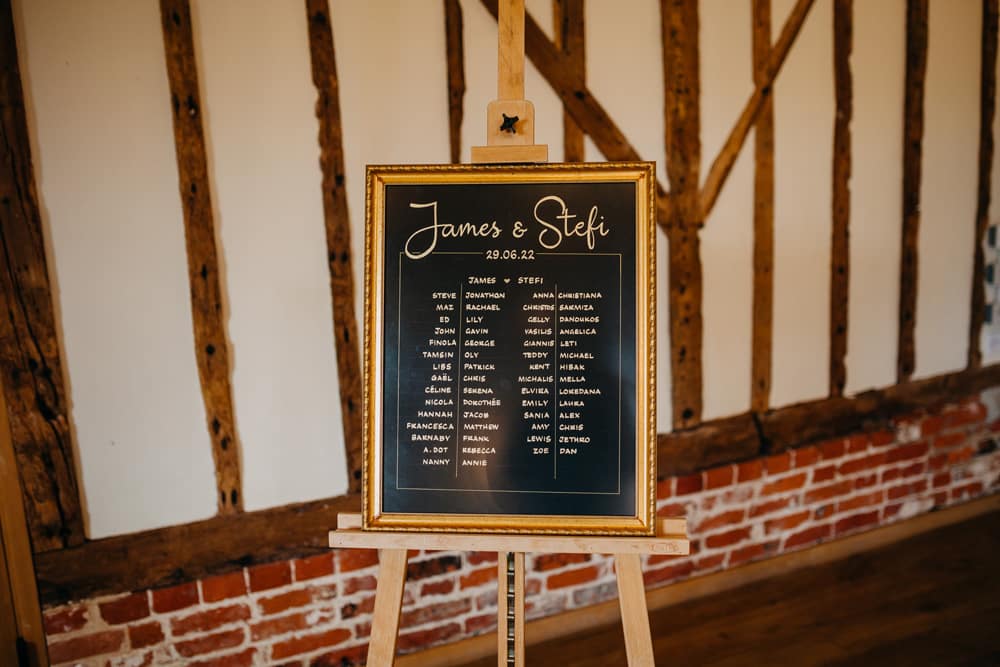 James & Stefi
29.06.22
JAMES ♥ STEFI
STEVE JONATHON ANNA CHRISTIANA
MAZ RACHAEL CHRISTOS SARMIZA
ED LILY GELLY DANOUKOS
JOHN GAVIN VASILIS ANGELICA
FINOLA GEORGE GIANNIS LETI
TAMSIN OLY TEDDY MICHAEL
LIBS PATRICK KENT HIBAK
GAËL CHRIS MICHALIS MELLA
CÉLINE SERENA ELVIRA LOREDANA
NICOLA DOROTHÉE EMILY LAURA
HANNAH JACOB SANIA ALEX
FRANCESCA MATTHEW AMY CHRIS
BARNABY FRANK LEWIS JETHRO
A. DOT REBECCA ZOE DAN
NANNY ANNIE